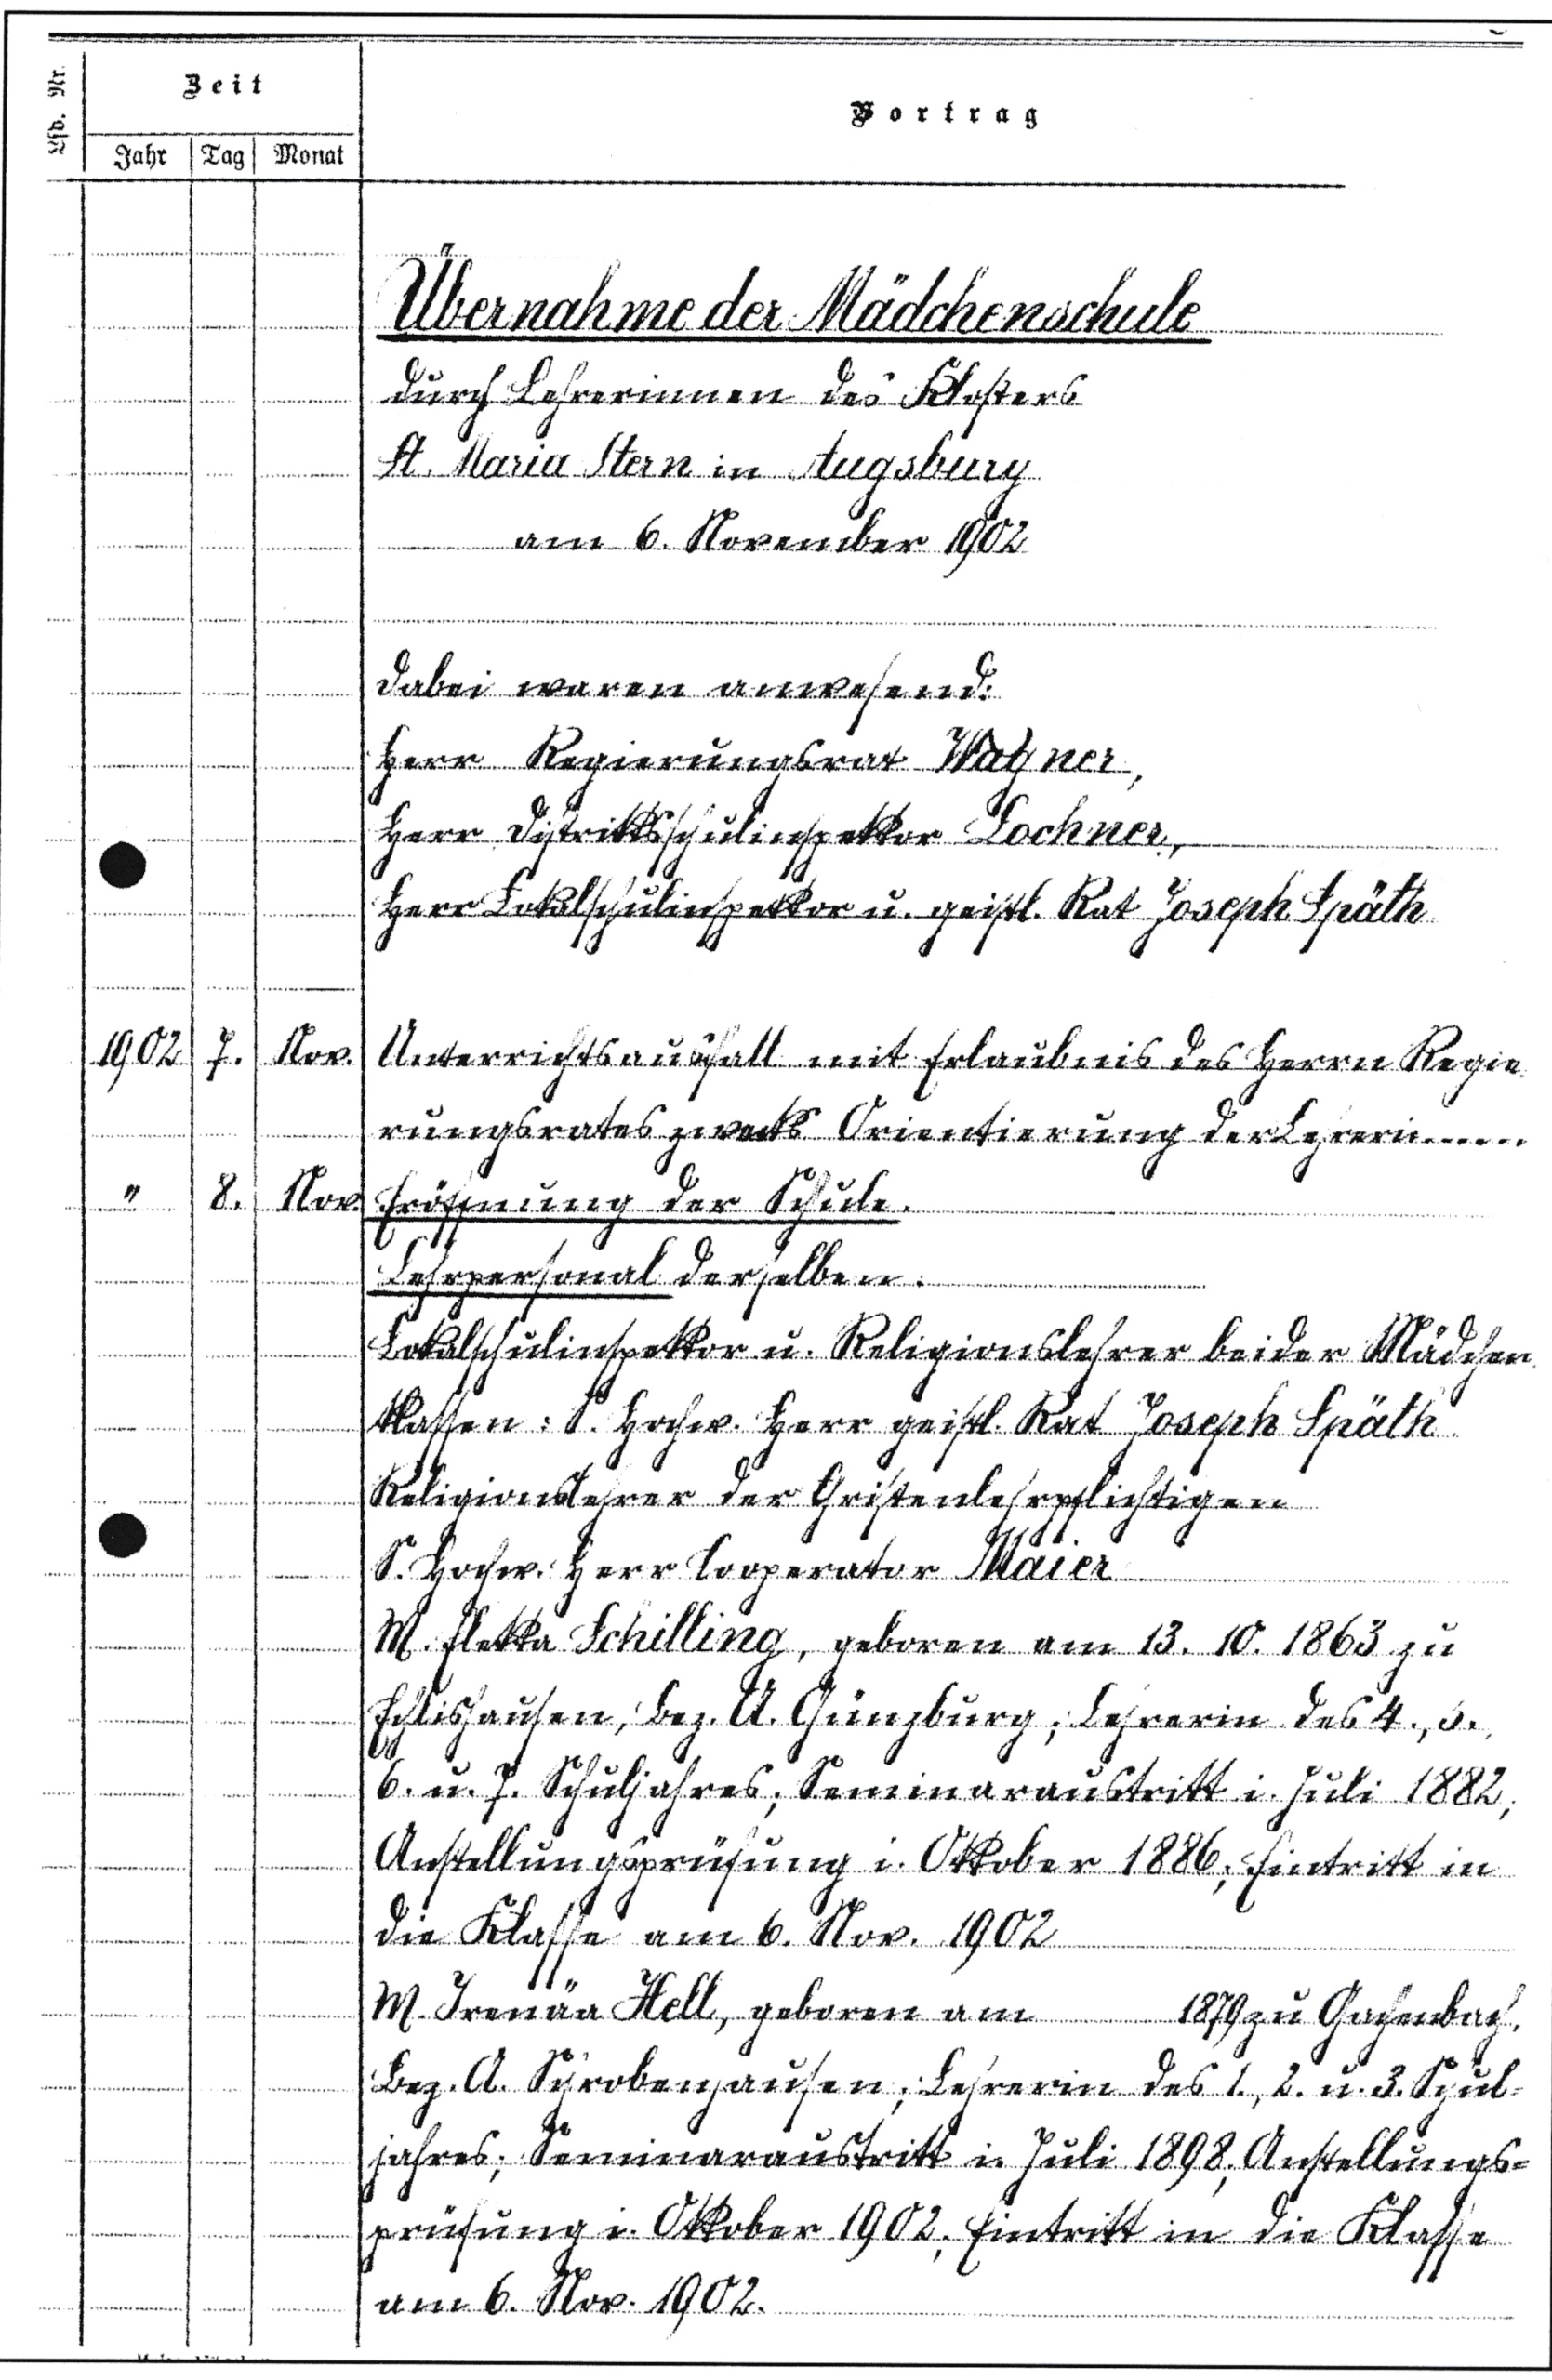 Lfd. Nr.
Zeit
Vortrag
Jahr Tag Monat
Übernahme der Mädchenschule
durch Lehrerinnen des Klosters
St. Maria Stern in Augsburg
am 6. November 1902
Dabei waren anwesend:
Herr Regierungsrat Wagner,
Herr Distriktsschulinspektor Lochner,
Herr Lokalschulinspektor u. geistl. Rat Joseph Späth
1902 7. Nov. Unterrichtsausfall mit Erlaubnis des Herrn Regie
rungsrates zwecks Orientierung der Lehrerin......
" 8. Nov. Eröffnung der Schule.
Lehrpersonal derselben.
Lokalschulinspektor u. Religionslehrer beider Mädchen
klassen: S. Hochw. Herr geistl. Rat Joseph Späth
Religionslehrer der Christenlehrpflichtigen
S. Hochw. Herr Cooperator Maier
M. Elekta Schilling, geboren am 13. 10. 1863 zu
Echlishausen, Bez. A. Günzburg; Lehrerin des 4., 5.,
6. u. 7. Schuljahres; Seminaraustritt i. Juli 1882;
Anstellungsprüfung i. Oktober 1886; Eintritt in
die Klasse am 6. Nov. 1902
M. Irenäa Hell, geboren am 1879 zu Gachenbach,
Bez. A. Schrobenhausen; Lehrerin des 1., 2. u. 3. Schul-
jahres; Seminaraustritt i. Juli 1898; Anstellungs=
prüfung i. Oktober 1902; Eintritt in die Klasse
am 6. Nov. 1902.